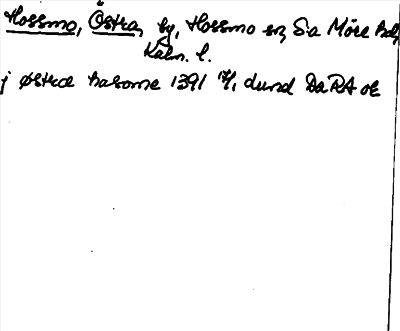 Hossmo, Östra, by, Hossmo sn, S:a Möre hd,
Kalm. l.
j østræ hasome 1391 17/1 dund DaRA ok